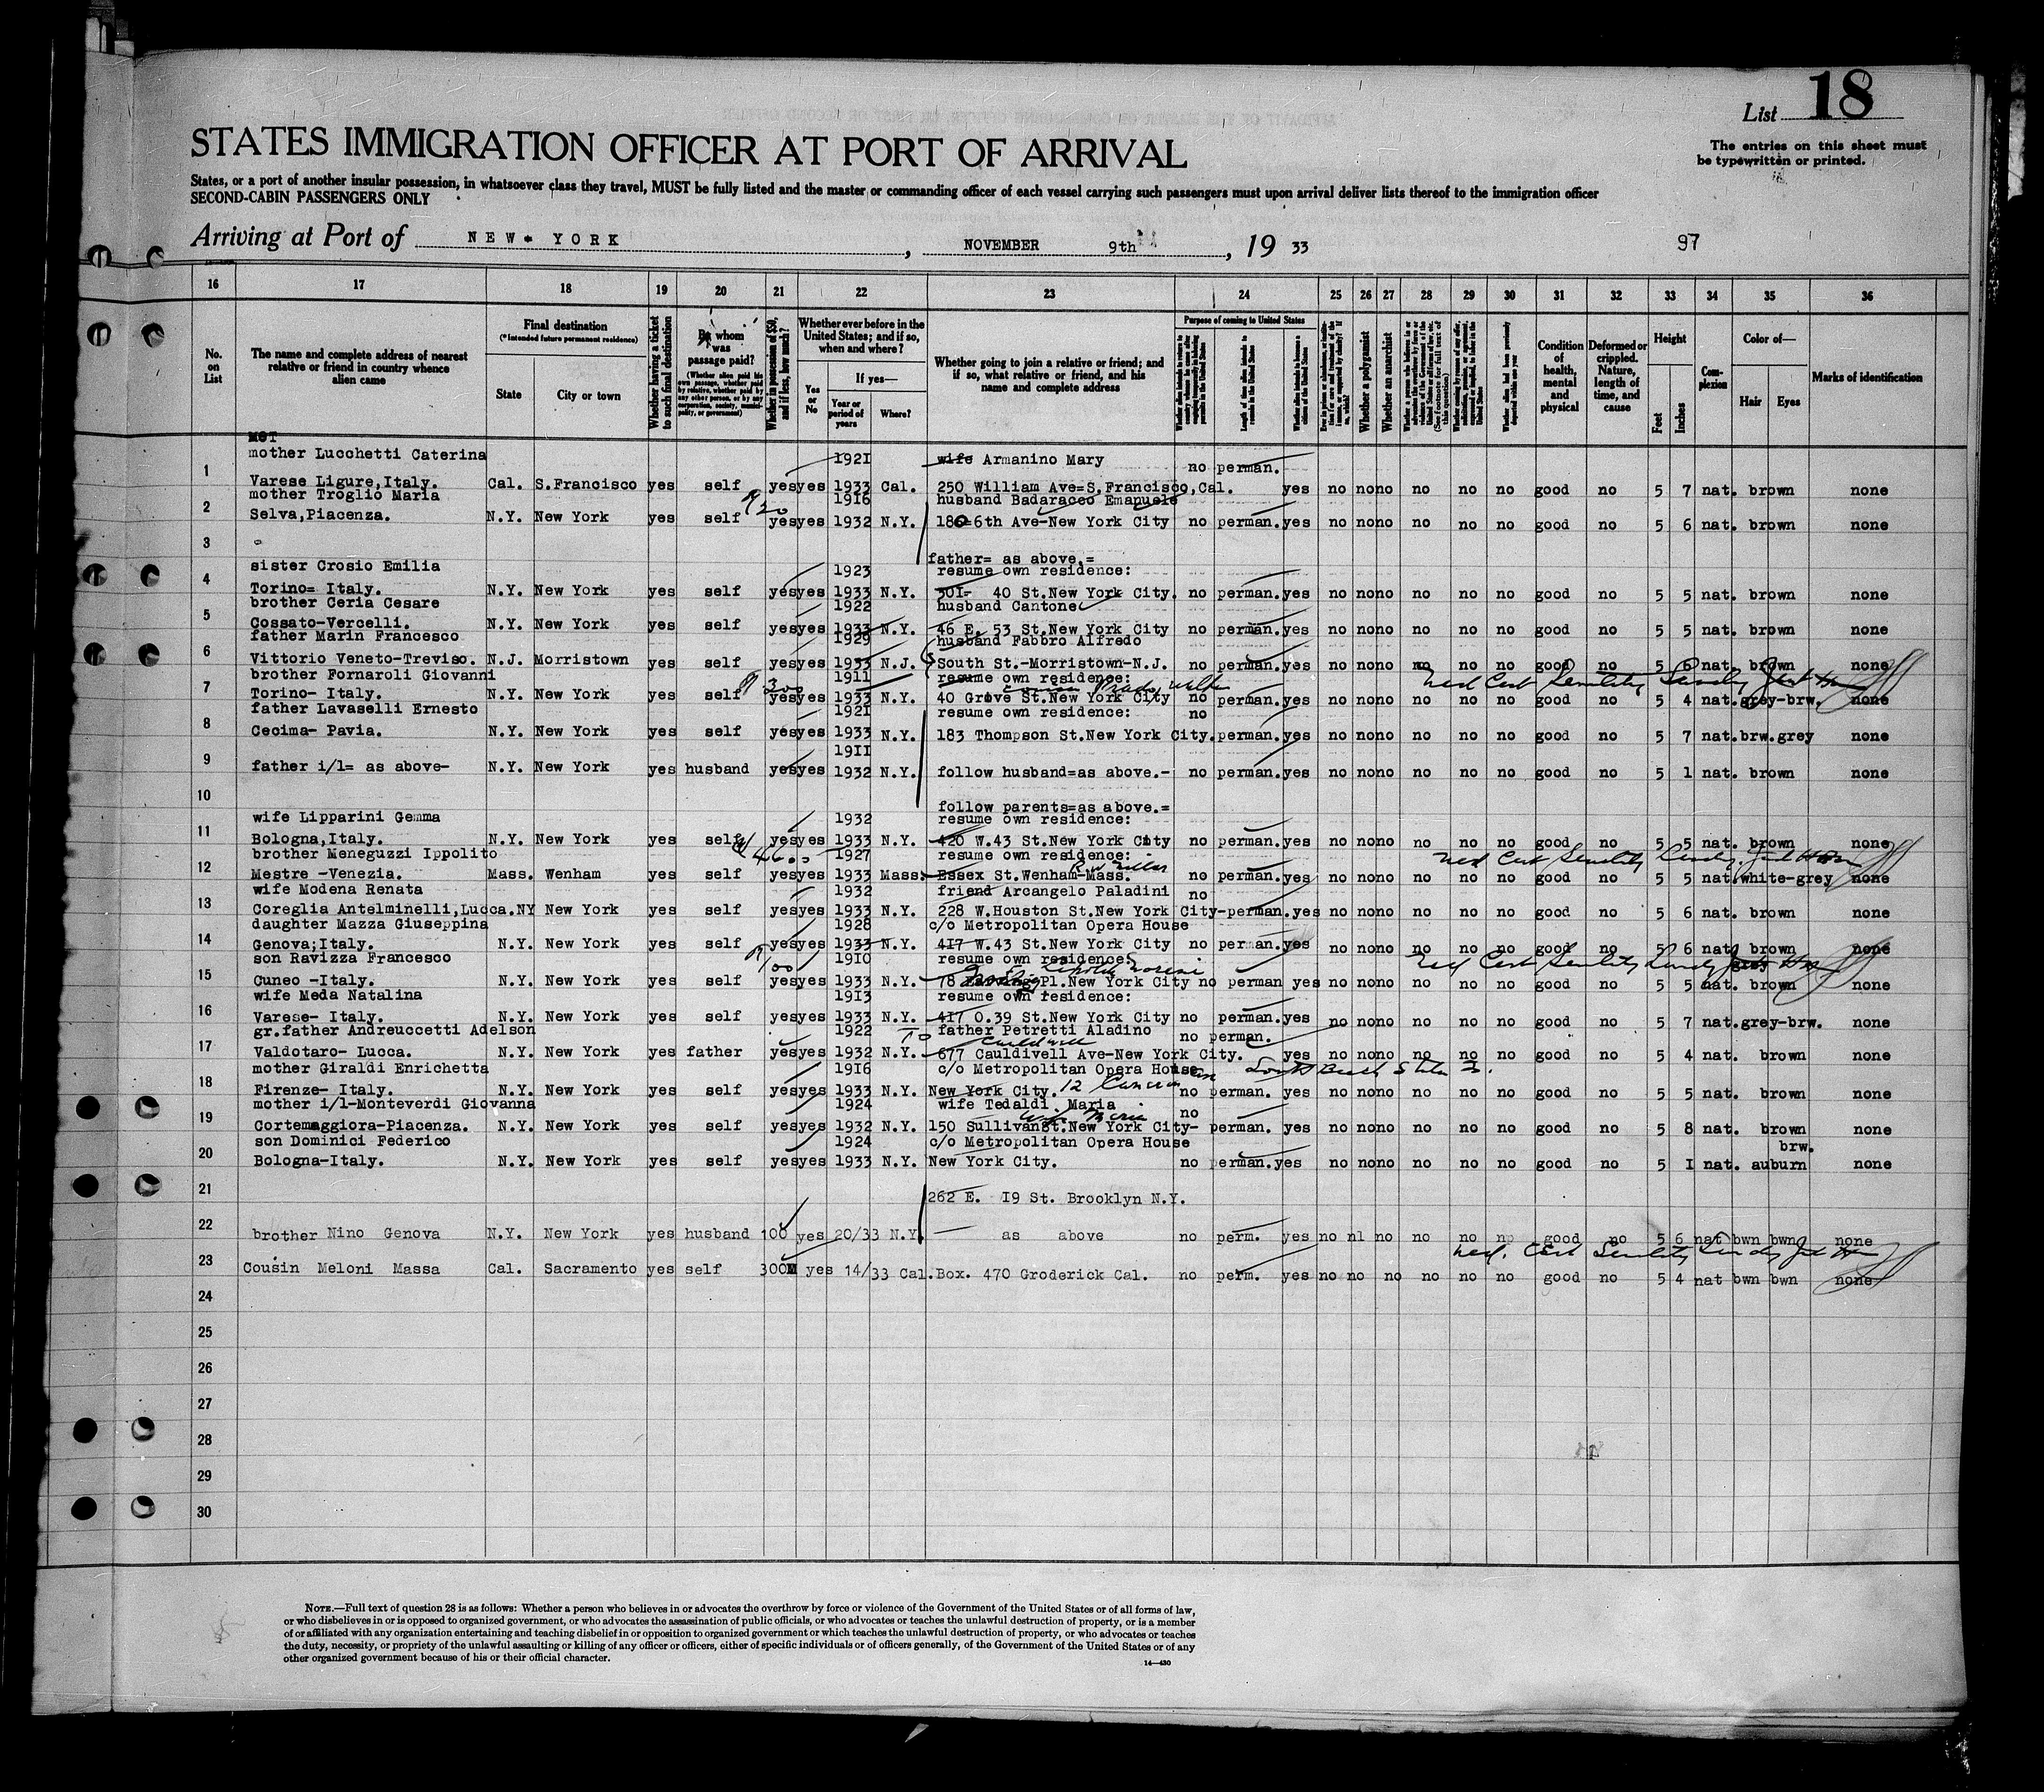 List 18
The entries on this sheet must
be typewritten or printed.
STATES IMMIGRATION OFFICER AT PORT OF ARRIVAL
States, or a port of another insular possession, in whatsoever class they travel, MUST be fully listed and the master or commanding officer of each vessel carrying such passengers must upon arrival deliver lists thereof to the immigration officer
SECOND-CABIN PASSENGERS ONLY
Arriving at Port of NEW YORK, NOVEMBER 9th, 19 33 97
16 17 18 19 20 21 22 23 24 25 26 27 28 29 30 31 32 33 34 35 36
No. on List
The name and complete address of nearest relative or friend in country whence alien came
Final destination
(*Intended future permanent residence)
State
City or town
Whether having a ticket to such final destination
By whom was passage paid?
(Whether alien paid his own passage, whether paid by relative, whether paid by any other person, or by any corporation, society, municipality, or government)
Whether in possession of $50, and if less, how much?
Whether ever before in the United States; and if so, when and where?
Yes or No
If yes—
Year or period of years
Where?
Whether going to join a relative or friend; and if so, what relative or friend, and his name and complete address
Purpose of coming to United States
Length of time alien intends to remain in the United States
Whether alien intends to become a citizen of the United States
Whether a polygamist
Whether an anarchist
Condition of health, mental and physical
Deformed or crippled. Nature, length of time, and cause
Height
Feet
Inches
Complexion
Color of—
Hair
Eyes
Marks of identification
mother Lucchetti Caterina 1921 wife Armanino Mary no perman.
1 Varese Ligure,Italy. Cal. S.Francisco yes self yes yes 1933 Cal. 250 William Ave=S.Francisco,Cal. yes no no no no no no good no 5 7 nat. brown none
mother Troglio Maria 1916 husband Badaracco Emanuele
2 Selva,Piacenza. N.Y. New York yes self yes yes 1932 N.Y. 180=6th Ave-New York City no perman. yes no no no no no no good no 5 6 nat. brown none
3 father= as above.=
sister Crosio Emilia 1923 resume own residence:
4 Torino= Italy. N.Y. New York yes self yes yes 1933 N.Y. 301- 40 St.New York City. no perman. yes no no no no no no good no 5 5 nat. brown none
brother Ceria Cesare 1922 husband Cantone
5 Cossato-Vercelli. N.Y. New York yes self yes yes 1933 N.Y. 46 E. 53 St.New York City no perman. yes no no no no no no good no 5 5 nat. brown none
father Marin Francesco 1929 husband Fabbro Alfredo
6 Vittorio Veneto-Treviso. N.J. Morristown yes self yes yes 1933 N.J. South St.-Morristown-N.J. no perman. yes no no no no no no good no 5 6 nat. brown none
brother Fornaroli Giovanni 300 1911 resume own residence: Med Cert Senility
7 Torino- Italy. N.Y. New York yes self yes yes 1933 N.Y. 40 Grove St.New York City no perman. yes no no no no no no good no 5 4 nat. grey-brw. none
father Lavaselli Ernesto 1921 resume own residence: no
8 Cecima- Pavia. N.Y. New York yes self yes yes 1933 N.Y. 183 Thompson St.New York City. perman. yes no no no no no no good no 5 7 nat. brw.grey none
1911
9 father i/l= as above- N.Y. New York yes husband yes yes 1932 N.Y. follow husband=as above.- no perman. yes no no no no no no good no 5 1 nat. brown none
10 follow parents=as above.=
wife Lipparini Gemma 1932 resume own residence:
11 Bologna,Italy. N.Y. New York yes self yes yes 1933 N.Y. 420 W.43 St.New York City no perman. yes no no no no no no good no 5 5 nat. brown none
brother Meneguzzi Ippolito 1927 resume own residence: Med Cert Senility
12 Mestre -Venezia. Mass. Wenham yes self yes yes 1933 Mass. Essex St.Wenham-Mass. no perman. yes no no no no no no good no 5 5 nat. white-grey none
wife Modena Renata 1932 friend Arcangelo Paladini no
13 Coreglia Antelminelli,Lucca. NY New York yes self yes yes 1933 N.Y. 228 W.Houston St.New York City- perman. yes no no no no no no good no 5 6 nat. brown none
daughter Mazza Giuseppina 1928 c/o Metropolitan Opera House
14 Genova;Italy. N.Y. New York yes self yes yes 1933 N.Y. 417 W.43 St.New York City no perman. yes no no no no no no good no 5 6 nat. brown none
son Ravizza Francesco 100 1910 resume own residence: Med Cert Senility
15 Cuneo -Italy. N.Y. New York yes self yes yes 1933 N.Y. 78 Pl.New York City no perman yes no no no no no no good no 5 5 nat. brown none
wife Meda Natalina 1913 resume own residence:
16 Varese- Italy. N.Y. New York yes self yes yes 1933 N.Y. 417 O.39 St.New York City no perman. yes no no no no no no good no 5 7 nat. grey-brw. none
gr.father Andreuccetti Adelson 1922 father Petretti Aladino no perman.
17 Valdotaro- Lucca. N.Y. New York yes father yes yes 1932 N.Y. 677 Cauldivell Ave-New York City. yes no no no no no no good no 5 4 nat. brown none
mother Giraldi Enrichetta 1916 c/o Metropolitan Opera House
18 Firenze- Italy. N.Y. New York yes self yes yes 1933 N.Y. New York City. 12 no perman. yes no no no no no no good no 5 5 nat. brown none
mother i/l-Monteverdi Giovanna 1924 wife Tedaldi Maria no
19 Cortemaggiora-Piacenza. N.Y. New York yes self yes yes 1932 N.Y. 150 Sullivan St.New York City- perman. yes no no no no no no good no 5 8 nat. brown none
son Dominici Federico 1924 c/o Metropolitan Opera House brw.
20 Bologna-Italy. N.Y. New York yes self yes yes 1933 N.Y. New York City. no perman. yes no no no no no no good no 5 I nat. auburn none
21 262 E. I9 St. Brooklyn N.Y.
22 brother Nino Genova N.Y. New York yes husband 100 yes 20/33 N.Y. as above no perm. yes no nl no no no np good no 5 6 nat bwn bwn none
Med. Cert Senility
23 Cousin Meloni Massa Cal. Sacramento yes self 300 yes 14/33 Cal. Box. 470 Groderick Cal. no perm. yes no no no no no no good no 5 4 nat bwn bwn none
24
25
26
27
28
29
30
NOTE.—Full text of question 28 is as follows: Whether a person who believes in or advocates the overthrow by force or violence of the Government of the United States or of all forms of law,
or who disbelieves in or is opposed to organized government, or who advocates the assassination of public officials, or who advocates or teaches the unlawful destruction of property, or is a member
of or affiliated with any organization entertaining and teaching disbelief in or opposition to organized government or which teaches the unlawful destruction of property, or who advocates or teaches
the duty, necessity, or propriety of the unlawful assaulting or killing of any officer or officers, either of specific individuals or of officers generally, of the Government of the United States or of any
other organized government because of his or their official character.
14—430